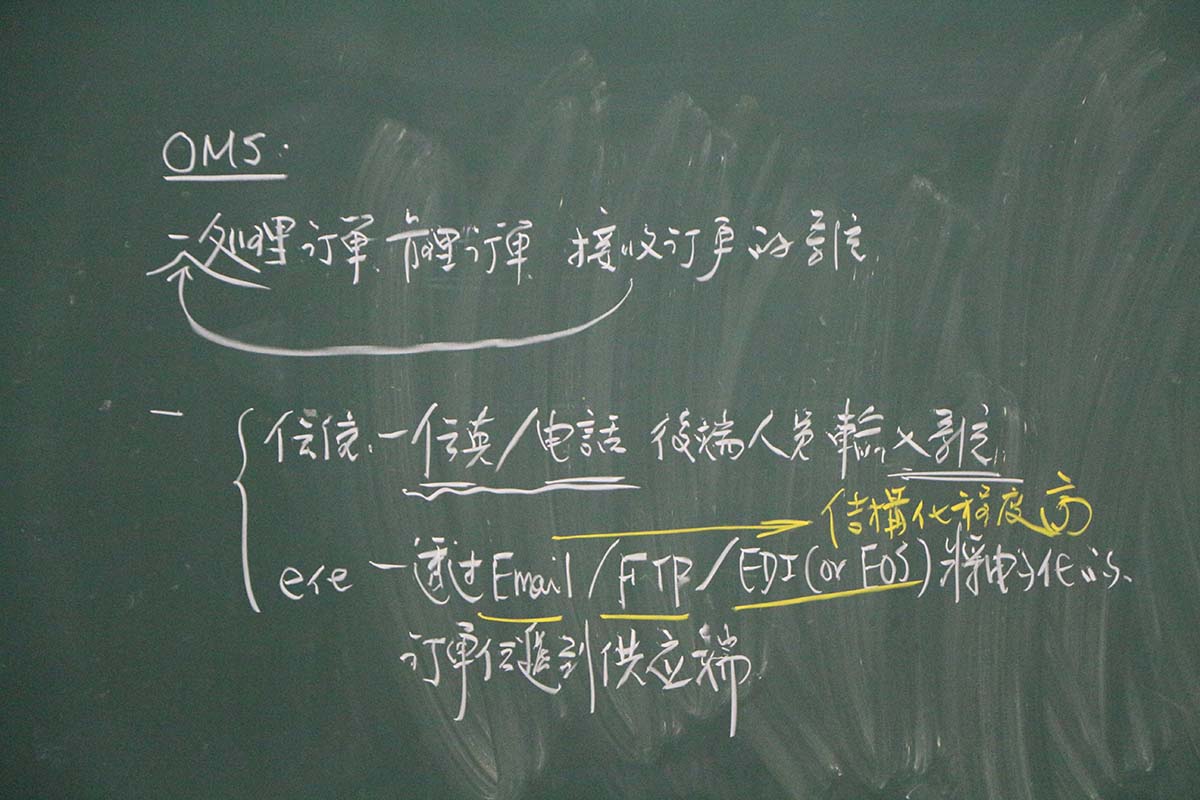 OMS.
一处理订单、管理订单、接收订单的系统
一
传统、一传真/电話 後端人员輸入系統
結構化程度高
ele 一透过Email/FTP/EDI(or EOS)将电子化的
訂單传遞到供应端